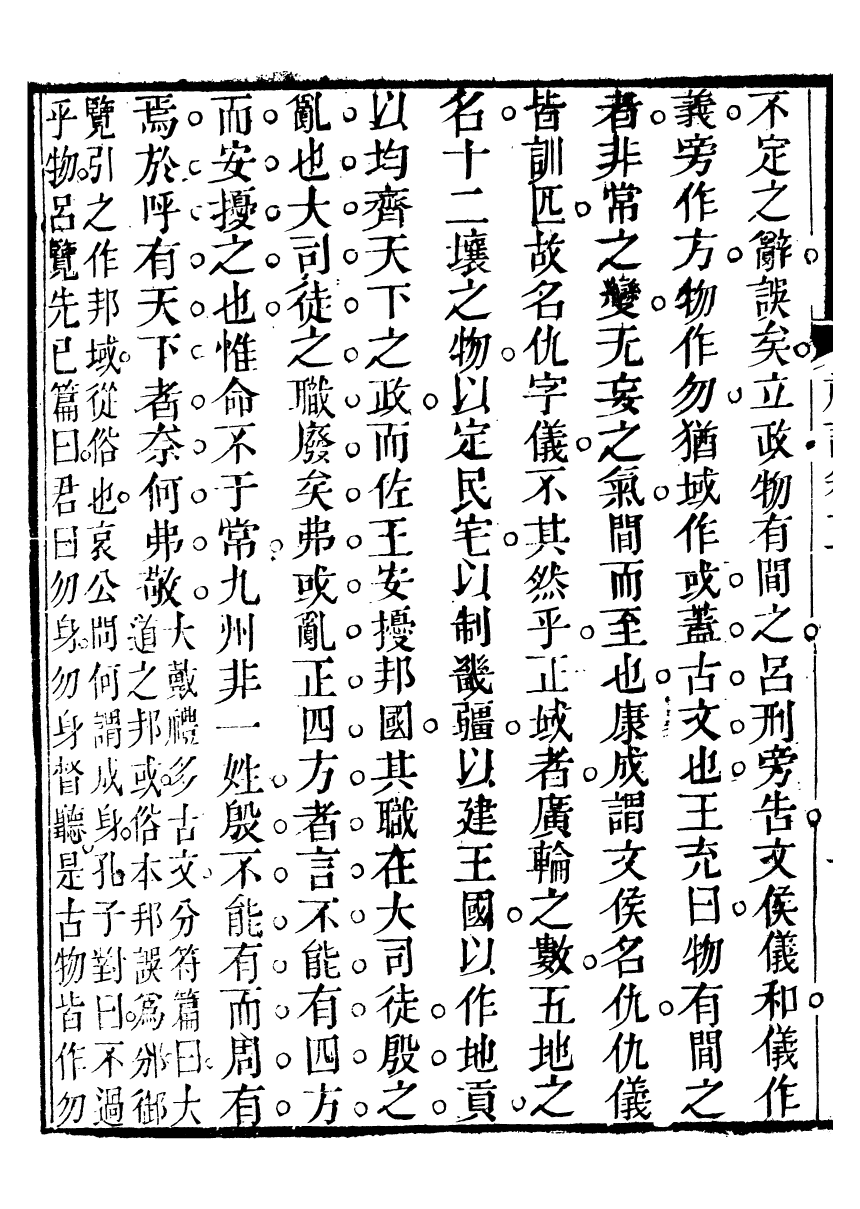 不定之辭誤矣立政物有閒之呂刑旁告文侯儀和儀作
義旁作方物作勿猶域作或蓋古文也王充曰物有閒之
者非常之變无妄之氣閒而至也康成謂文侯名仇仇儀
皆訓匹故名仇字儀不其然乎正域者廣輪之數五地之
名十二壤之物以定民宅以制畿疆以建王國以作地貢
以均齊天下之政而佐王安擾邦國其職在大司徒殷之
亂也大司徒之職廢矣弗或亂正四方者言不能有四方
而安擾之也惟命不于常九州非一姓殷不能有而周有
焉於呼有天下者奈何弗敬
大戴禮多古文分符篇曰大
道之邦或俗本邦誤爲郷御
覽引之作邦域從俗也哀公問何謂成身孔子對曰不過
乎物呂覽先已篇曰君曰勿身勿身督聽是古物皆作勿